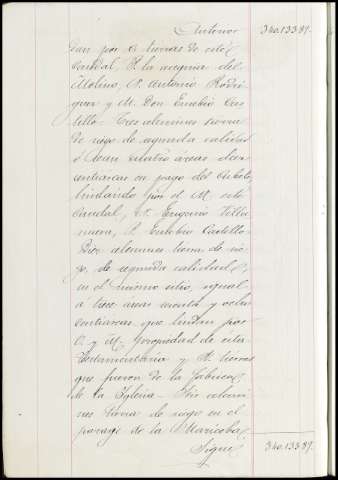 Anterior 340.133 87.
dan por O. tierras de este
caudal, N. la acequia del
Molino, S. Antonio Rodri
guez y M. Don Eusebio Cas
tillo. Tres celemines tierra
de riego de segunda calidad
ó sean cuatro áreas
centiareas en pago del
lindando por el M. este
caudal, S. Gregorio Villa
nueva, N. Eusebio Castillo.
Diez celemines tierra de rie
go, de segunda calidad,
en el mismo sitio, igual
a trece áreas y ocho
centiareas que lindan por
O. y M. propiedad de esta
testamentaria y N. tierras
que fueron de la fábrica
de la Iglesia. celemi
nes tierra de riego en el
parage de la
Sigue 340.133 87.